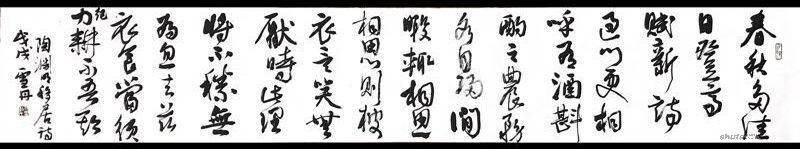 春秋多佳
日登高
賦新詩
過門更相
呼有酒斟
酌之農務
各自歸閒
暇輒相思
相思則披
衣言笑無
厭時此理
將不勝無
為忽去茲
衣食當須
紀力耕不吾欺
陶淵明移居詩
戊戌雲